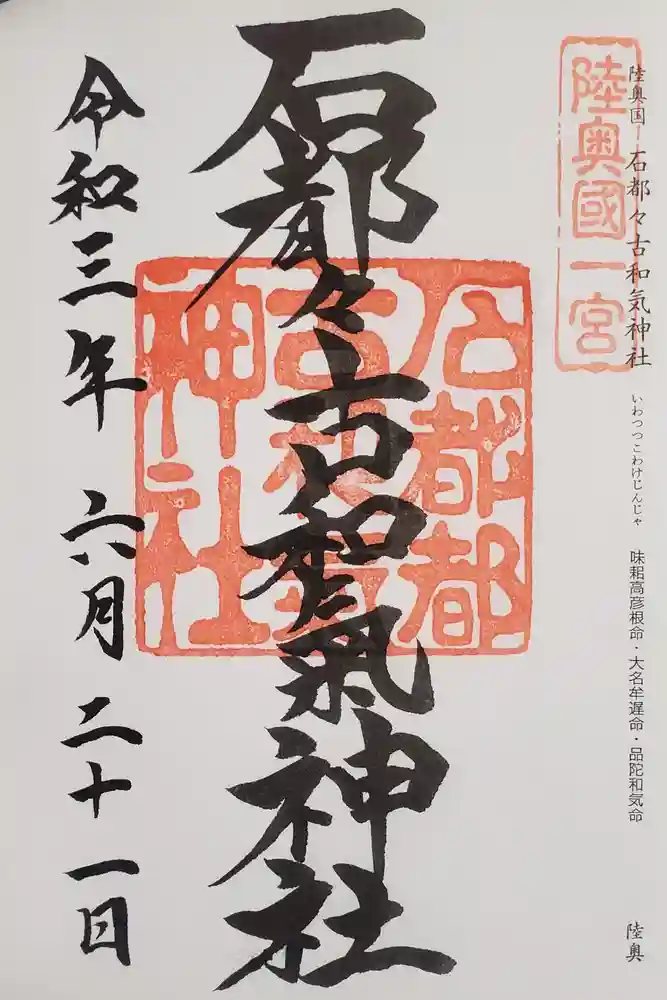 陸奥国 石都々古和気神社
いわつつこわけじんじゃ
味耜高彦根命・大名牟遅命・品陀和気命
陸奥
陸奥國一宮
石都々古和氣神社
石都都
古和氣
神社
令和三年 六月 二十一日